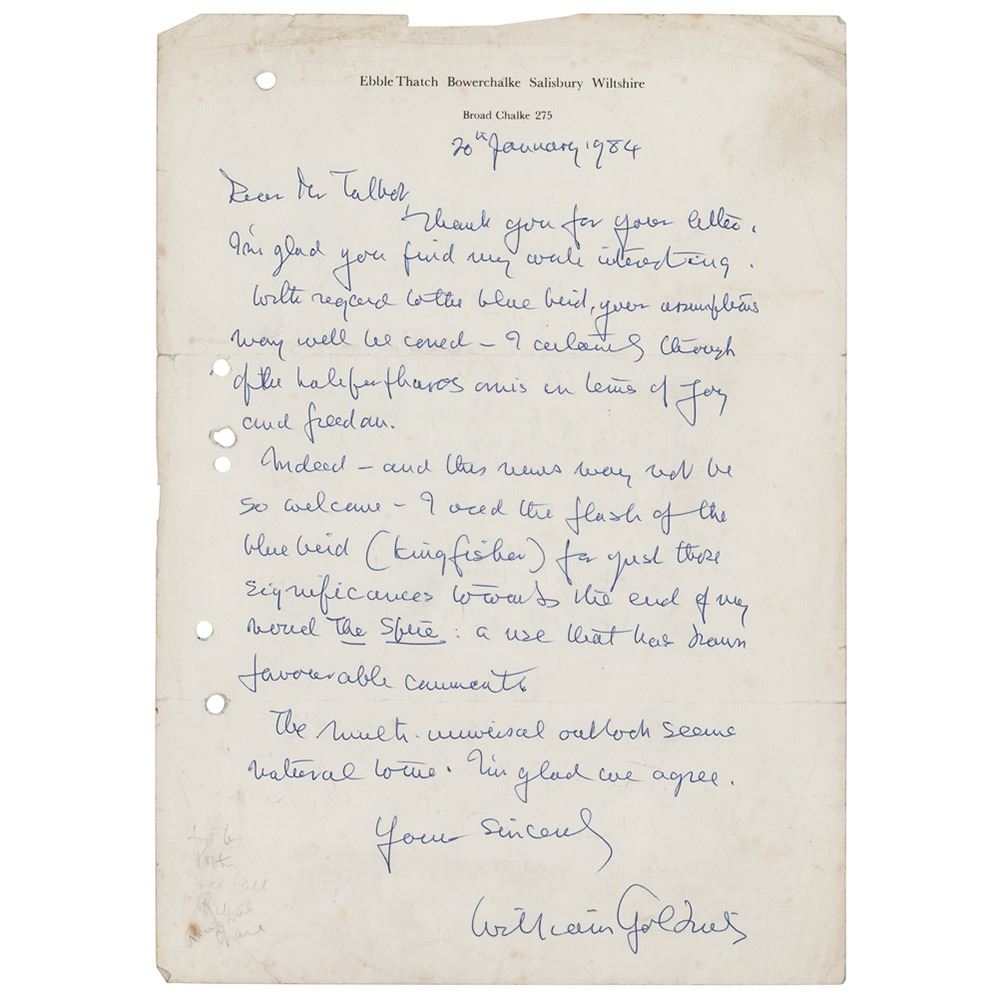 Ebble Thatch Bowerchalke Salisbury Wiltshire
Broad Chalke 275
20th January 1984
Dear Mr Talbot,
Thank you for your letter.
I'm glad you find my work interesting.
With regard to the blue bird, your assumptions
may well be correct – I certainly though
of the amis in terms of Joy
and freedom.
Indeed – and this news may not be
so welcome – I used the flash of the
blue bird (kingfisher) for just those
significances towards the end of my
novel The Spire: a use that has drawn
favourable comments
The multi-universal outlook seems
natural to me. I'm glad we agree.
Yours sincerely
William Golding